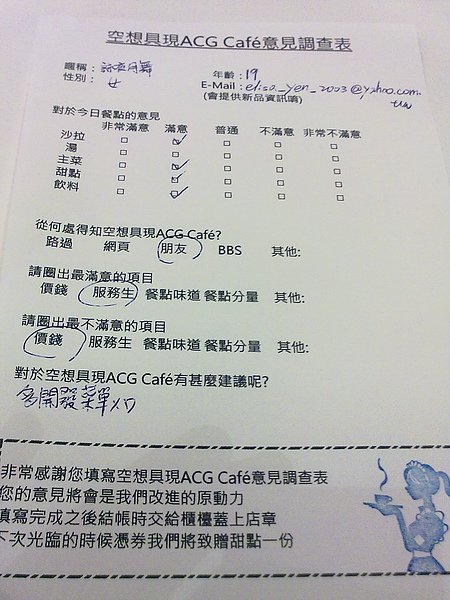 空想具現ACG Café意見調查表
暱稱：
年齡：19
性別：女
E-Mail：elisa_yen_2003@yahoo.com.tw
(會提供新品資訊唷)
對於今日餐點的意見
非常滿意 滿意 普通 不滿意 非常不滿意
沙拉
湯
主菜
甜點
飲料
從何處得知空想具現ACG Café?
路過 網頁 朋友 BBS 其他:
請圈出最滿意的項目
價錢 服務生 餐點味道 餐點分量 其他:
請圈出最不滿意的項目
價錢 服務生 餐點味道 餐點分量 其他:
對於空想具現ACG Café有甚麼建議呢?
多開發菜單XD
非常感謝您填寫空想具現ACG Café意見調查表
您的意見將會是我們改進的原動力
填寫完成之後結帳時交給櫃檯蓋上店章
下次光臨的時候憑券我們將致贈甜點一份